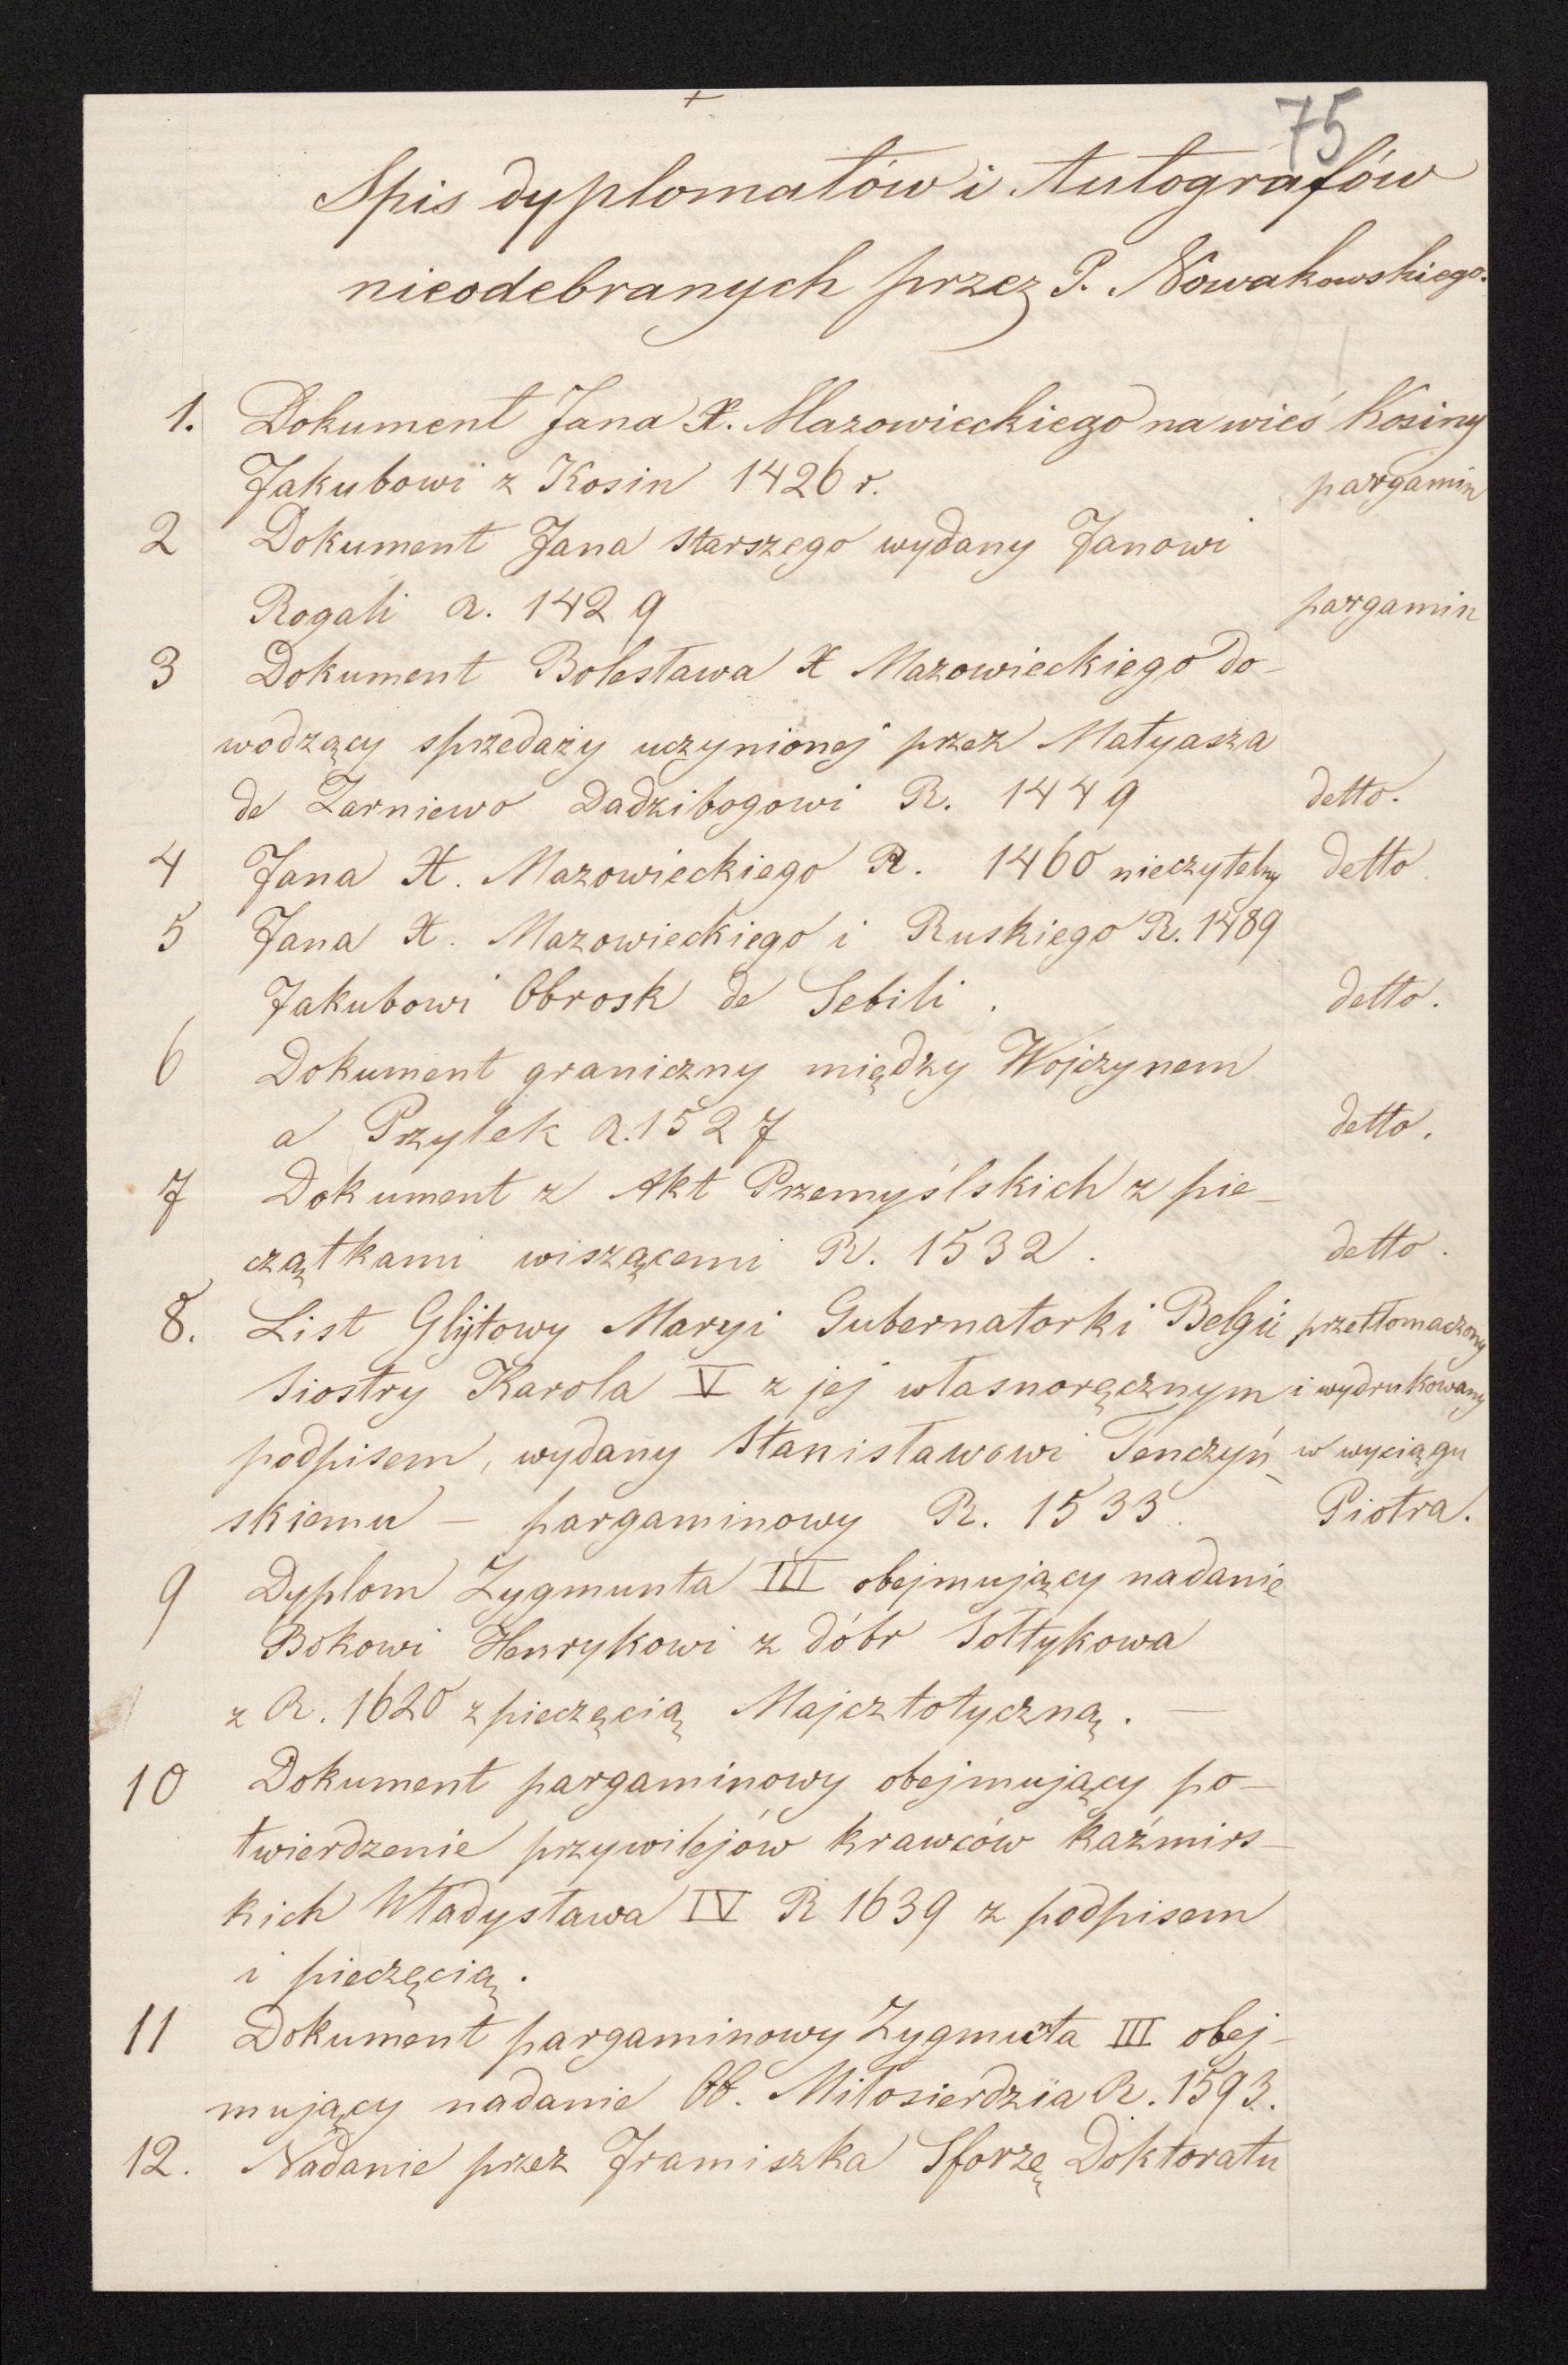 75
Spis dyplomatów i Autografów
nieodebranych przez P. Nowakowskiego.
1. Dokument Jana X. Mazowieckiego na wieś Kosiny
Jakubowi z Kosin 1426 r. pargamin
2 Dokument Jana Starszego wydany Janowi
Rogali R. 1429 pargamin
3 Dokument Bolesława X Mazowieckiego do-
wodzący sprzedaży uczynionej przez Matyasza
de Zarniewo Dadzibogowi R. 1449 detto.
4 Jana X. Mazowieckiego R. 1460 nieczytelny detto.
5 Jana X. Mazowieckiego i Ruskiego R. 1489
Jakubowi Obrosk de Sebili. detto.
6 Dokument graniczny między Wójczynem
a Przylek R. 1527 detto.
7 Dokument z Akt Przemyślskich z pie-
czątkami wiszącemi R. 1532. detto.
8. List Glijtowy Maryi Gubernatorki Belgii przetłomaczony
Siostry Karola V z jej własnoręcznym i wydrukowany
podpisem, wydany Stanisławowi Tenczyń- w wyciągu
skiemu – pargaminowy R. 1533. Piotra.
9 Dyplom Zygmunta III obejmujący nadanie
Bokowi Henrykowi z dóbr Sołtykowa
z R. 1620 z pieczęcią Majcztotyczną. —
10 Dokument pargaminowy obejmujący po-
twierdzenie przywilejów krawców kaźmirs-
kich Władysława IV R 1639 z podpisem
i pieczęcią.
11 Dokument pargaminowy Zygmuta III obej-
mujący nadanie Ob. Miłosierdzia R. 1593.
12. Nadanie przez Framiszka Sforzę Doktoratu